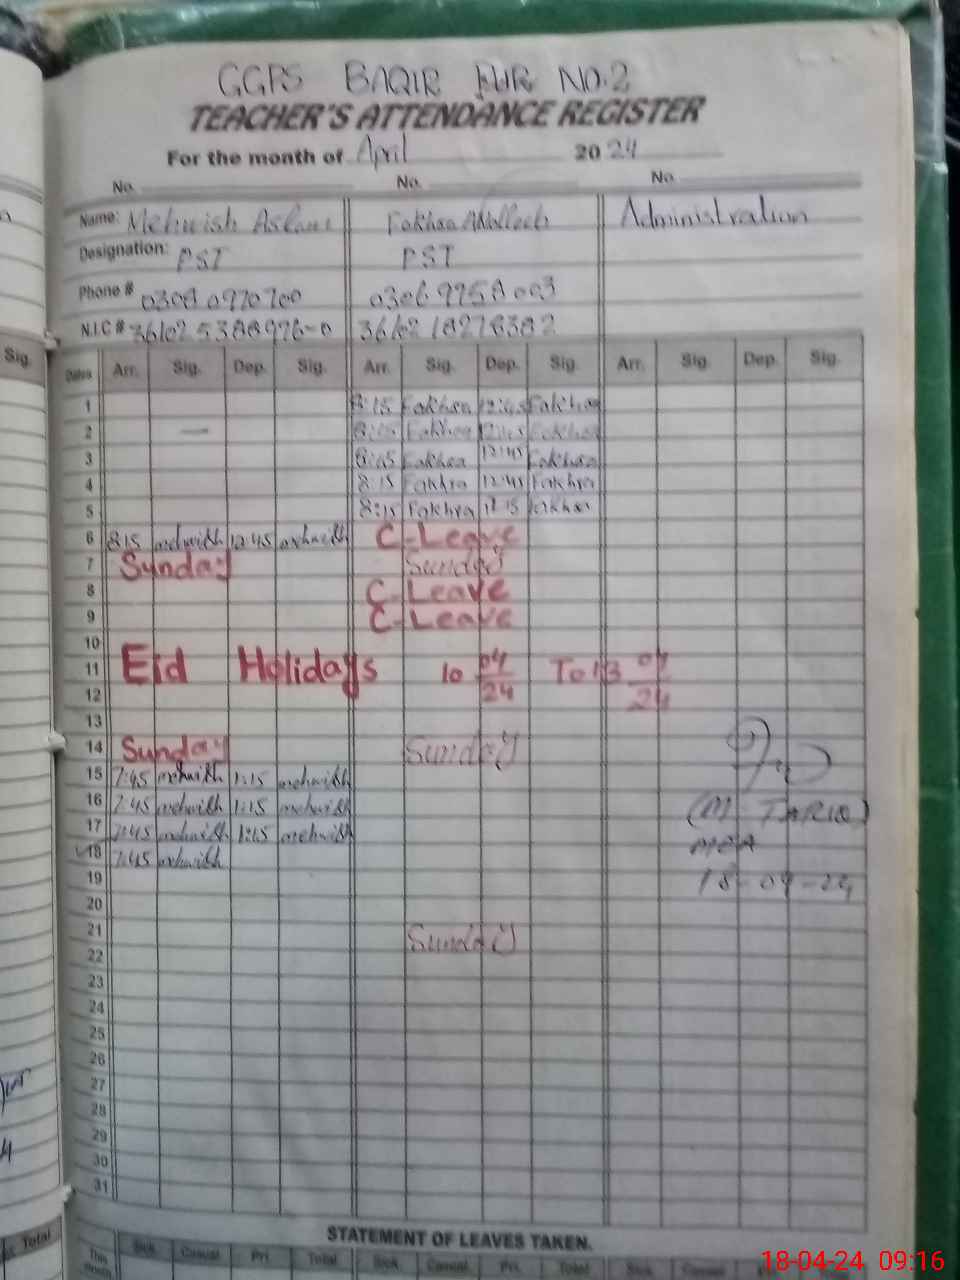 GGPS BAQIR PUR NO.2
TEACHER'S ATTENDANCE REGISTER
For the month of April 2024
No. No. No.
Name: Mehwish Aslam Fakhra Administration
Designation: PST PST
Phone #
N.I.C #
Sig. Dates Arr. Sig. Dep. Sig. Arr. Sig. Dep. Sig. Arr. Sig. Dep. Sig.
1 8:15 Fakhra 12:45 Fakhra
2 — 8:15 Fakhra 12:45 Fakhra
3 8:15 Fakhra 12:45 Fakhra
4 8:15 Fakhra 12:45 Fakhra
5 8:15 Fakhra Fakhra
6 8:15 mehwish 12:45 mehwish C-Leave
7 Sunday Sunday
8 C-Leave
9 C-Leave
10
11 Eid Holidays 10 04/24 To 13 04/24
12
13
14 Sunday Sunday
15 7:45 mehwish 1:15 mehwish
16 7:45 mehwish 1:15 mehwish (M. TARIQ)
17 7:45 mehwish 1:15 mehwish MEA
18 7:45 mehwish
19 18-04-24
20
21 Sunday
22
23
24
25
26
27
28
29
30
31
STATEMENT OF LEAVES TAKEN.
Total This month Sick Casual Pri. Total Sick Casual Pri. Total Sick Casual
18-04-24 09:16